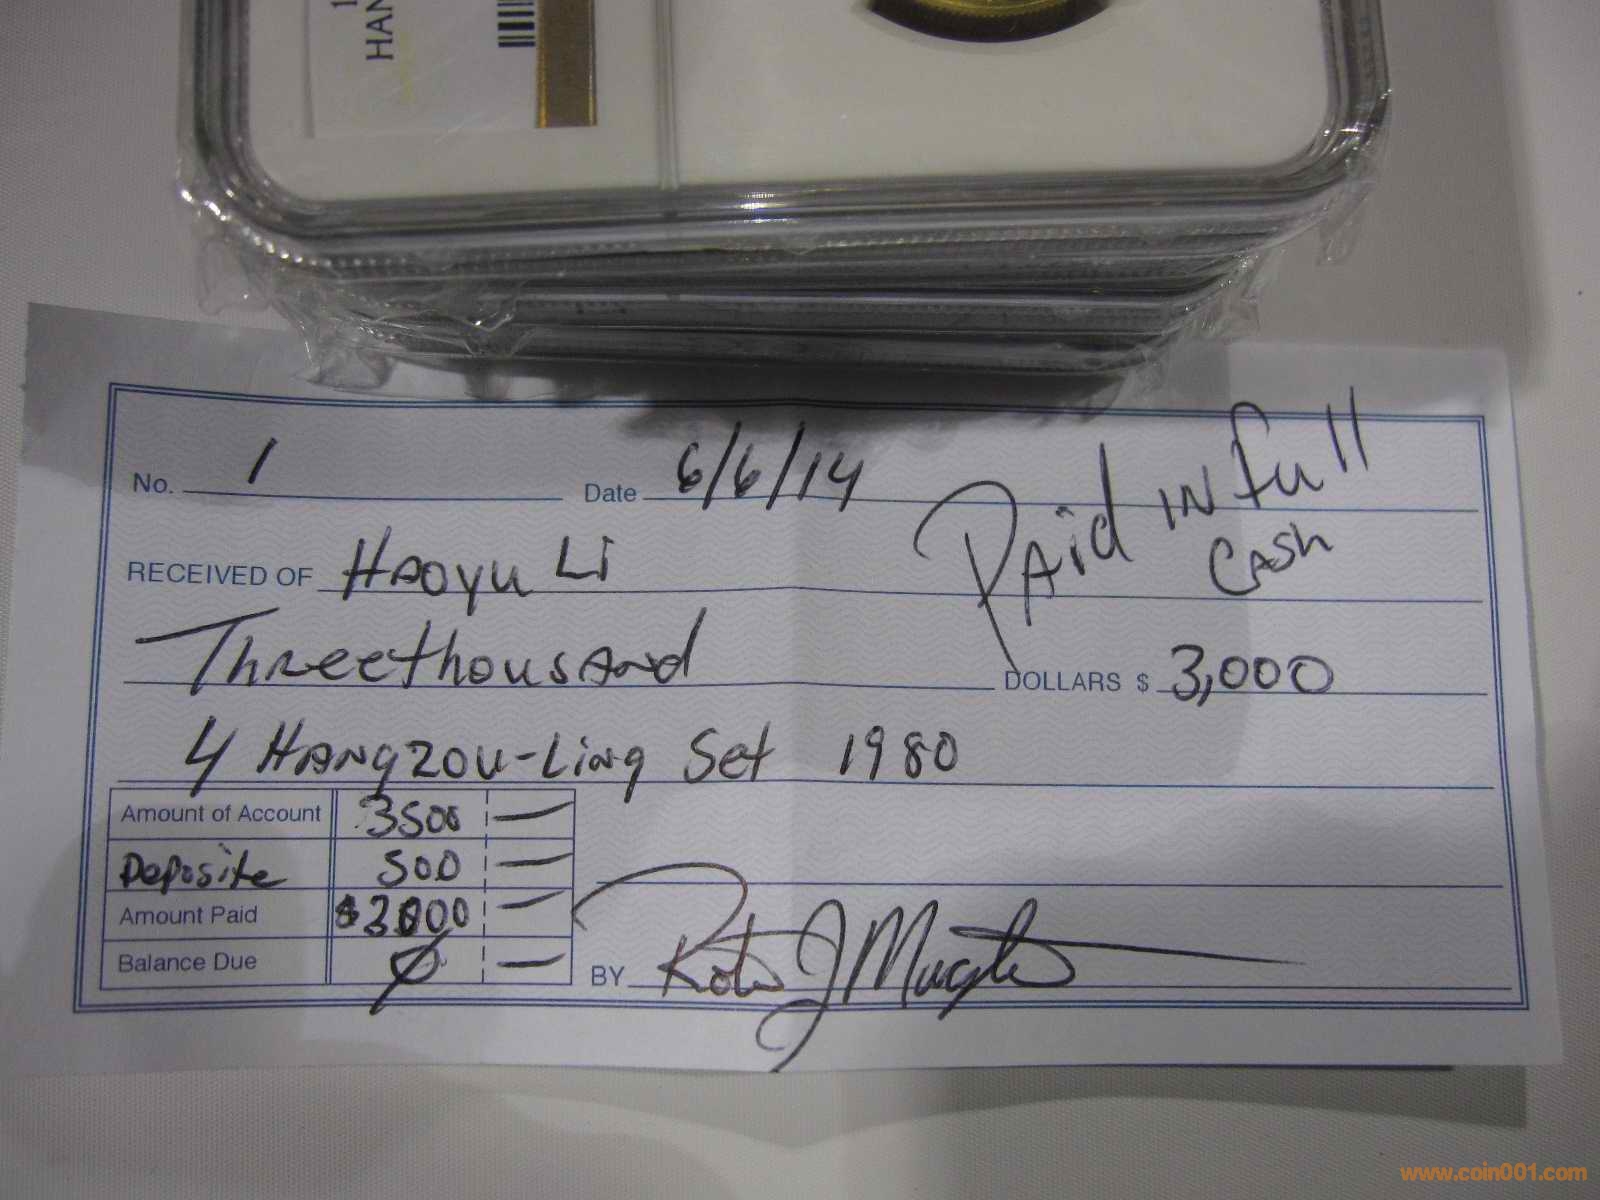 1
HAN
No. 1 Date 6/6/14 PAid IN full
CASH
RECEIVED OF HAOYU Li
Threethousand DOLLARS $ 3,000
4 HANgzou-Ling Set 1980
Amount of Account 3500 —
Deposite 500 —
Amount Paid $3000 —
Balance Due 0 —
BY
www.coin001.com